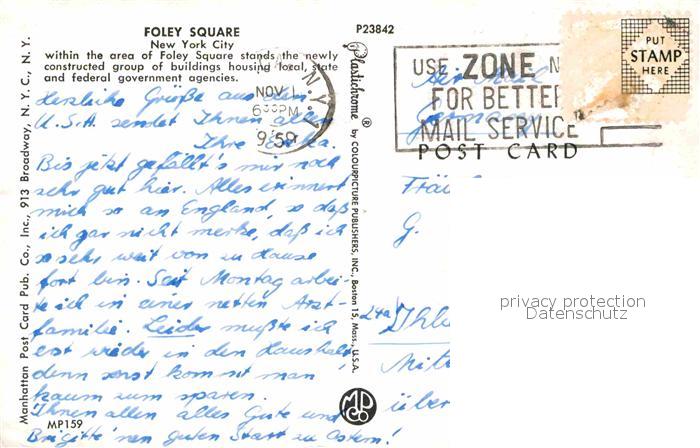 FOLEY SQUARE
New York City
within the area of Foley Square stands the newly
constructed group of buildings housing local, state
and federal government agencies.
P23842
Herzliche Grüße aus den
U.S.A. sendet Ihnen allen
Ihre
Bis jetzt gefällt's mir noch
sehr gut hier. Alles erinnert
mich so an England, so daß
ich gar nicht merke, daß ich
so sehr weit von zu Hause
fort bin. Seit Montag arbei-
te ich in einer netten Arzt-
familie. Leider mußte ich
erst wieder in den Haushalt,
denn sonst kommt man
kaum zum sparen.
Ihnen allen alles Gute und
Brigitte 'nen guten Start zu Ostern!
MP159
Manhattan Post Card Pub. Co., Inc., 913 Broadway, N. Y. C., N. Y.
N.Y.
NOV 1
6 30 PM
1959
Plastichrome ® by COLOURPICTURE PUBLISHERS, INC., Boston 15, Mass., U.S.A.
MP
CO
USE ZONE N
FOR BETTER
MAIL SERVICE
PUT
STAMP
HERE
POST CARD
Air Mail
Germany
Fräu
G.
24a
Mit
über
privacy protection
Datenschutz